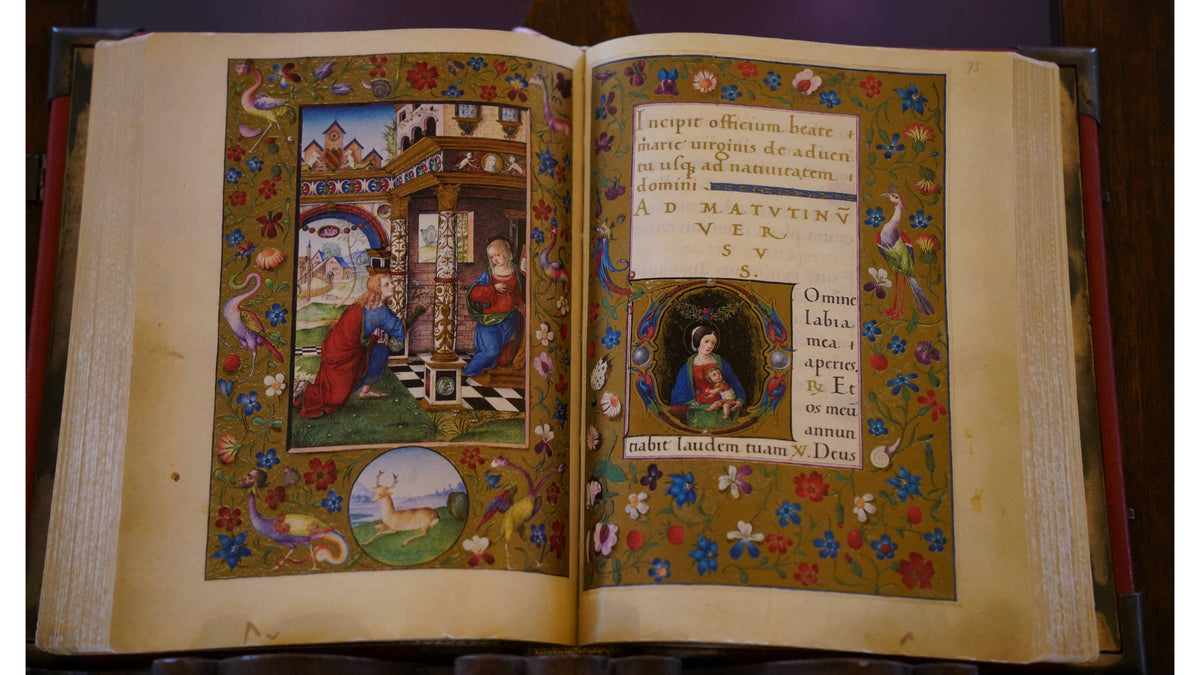 75
Incipit officium beate
marie uirginis de aduen
tu usqꝫ ad natiuitatem
domini
AD MATVTINV̄
VER
SV
S.
Omine
labia
mea
aperies.
℟ Et
os meū
annun
tiabit laudem tuam ℣. Deus